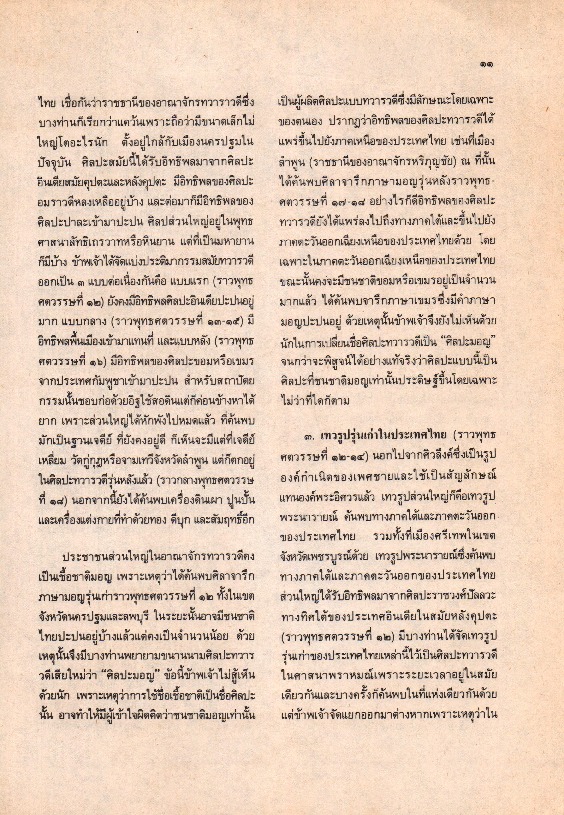 ๑๑
ไทย เชื่อกันว่าราชธานีของอาณาจักรทวาราวดีซึ่ง
บางท่านก็เรียกว่าแคว้นเพราะถือว่ามีขนาดเล็กไม่
ใหญ่โตอะไรนัก ตั้งอยู่ใกล้กับเมืองนครปฐมใน
ปัจจุบัน ศิลปะสมัยนี้ได้รับอิทธิพลมาจากศิลปะ
อินเดียสมัยคุปตะและหลังคุปตะ มีอิทธิพลของศิลปะ
อมราวดีหลงเหลืออยู่บ้าง และต่อมาก็มีอิทธิพลของ
ศิลปะปาละเข้ามาปะปน ศิลปส่วนใหญ่อยู่ในพุทธ
ศาสนาลัทธิเถรวาทหรือหินยาน แต่ที่เป็นมหายาน
ก็มีบ้าง ข้าพเจ้าได้จัดแบ่งประติมากรรมสมัยทวารวดี
ออกเป็น ๓ แบบต่อเนื่องกันคือ แบบแรก (ราวพุทธ
ศตวรรษที่ ๑๒) ยังคงมีอิทธิพลศิลปะอินเดียปะปนอยู่
มาก แบบกลาง (ราวพุทธศตวรรษที่ ๑๓-๑๕) มี
อิทธิพลพื้นเมืองเข้ามาแทนที่ และแบบหลัง (ราวพุทธ
ศตวรรษที่ ๑๖) มีอิทธิพลของศิลปะขอมหรือเขมร
จากประเทศกัมพูชาเข้ามาปะปน สำหรับสถาปัตย
กรรมนั้นชอบก่อด้วยอิฐใช้สอดินแต่ก็ค่อนข้างหาได้
ยาก เพราะส่วนใหญ่ได้หักพังไปหมดแล้ว ที่ค้นพบ
มักเป็นฐานเจดีย์ ที่ยังคงอยู่ดี ก็เห็นจะมีแต่ที่เจดีย์
เหลี่ยม วัดกู่กุฏหรือจามเทวีจังหวัดลำพูน แต่ก็ตกอยู่
ในศิลปะทวารวดีรุ่นหลังแล้ว (ราวกลางพุทธศตวรรษ
ที่ ๑๘) นอกจากนี้ยังได้ค้นพบเครื่องดินเผา ปูนปั้น
และเครื่องแต่งกายที่ทำด้วยทอง ดีบุก และสัมฤทธิ์อีก
ประชาชนส่วนใหญ่ในอาณาจักรทวารวดีคง
เป็นเชื้อชาติมอญ เพราะเหตุว่าได้ค้นพบศิลาจารึก
ภาษามอญรุ่นเก่าราวพุทธศตวรรษที่ ๑๒ ทั้งในเขต
จังหวัดนครปฐมและลพบุรี ในระยะนั้นอาจมีชนชาติ
ไทยปะปนอยู่บ้างแล้วแต่คงเป็นจำนวนน้อย ด้วย
เหตุนั้นจึงมีบางท่านพยายามขนานนามศิลปะทวาร
วดีเสียใหม่ว่า “ศิลปะมอญ” ข้อนี้ข้าพเจ้าไม่สู้เห็น
ด้วยนัก เพราะเหตุว่าการใช้ชื่อเชื้อชาติเป็นชื่อศิลปะ
นั้น อาจทำให้มีผู้เข้าใจผิดคิดว่าชนชาติมอญเท่านั้น
เป็นผู้ผลิตศิลปะแบบทวารวดีซึ่งมีลักษณะโดยเฉพาะ
ของตนเอง ปรากฏว่าอิทธิพลของศิลปะทวารวดีได้
แพร่ขึ้นไปยังภาคเหนือของประเทศไทย เช่นที่เมือง
ลำพูน (ราชธานีของอาณาจักรหริภุญชัย) ณ ที่นั้น
ได้ค้นพบศิลาจารึกภาษามอญรุ่นหลังราวพุทธ-
ศตวรรษที่ ๑๗-๑๘ อย่างไรก็ดีอิทธิพลของศิลปะ
ทวารวดียังได้แพร่ลงไปถึงทางภาคใต้และขึ้นไปยัง
ภาคตะวันออกเฉียงเหนือของประเทศไทยด้วย โดย
เฉพาะในภาคตะวันออกเฉียงเหนือของประเทศไทย
ขณะนั้นคงจะมีชนชาติขอมหรือเขมรอยู่เป็นจำนวน
มากแล้ว ได้ค้นพบจารึกภาษาเขมรซึ่งมีคำภาษา
มอญปะปนอยู่ ด้วยเหตุนั้นข้าพเจ้าจึงยังไม่เห็นด้วย
นักในการเปลี่ยนชื่อศิลปะทวารวดีเป็น “ศิลปะมอญ”
จนกว่าจะพิสูจน์ได้อย่างแท้จริงว่าศิลปะแบบนี้เป็น
ศิลปะที่ชนชาติมอญเท่านั้นประดิษฐ์ขึ้นโดยเฉพาะ
ไม่ว่าที่ใดก็ตาม
๓. เทวรูปรุ่นเก่าในประเทศไทย (ราวพุทธ
ศตวรรษที่ ๑๒-๑๔) นอกไปจากศิวลึงค์ซึ่งเป็นรูป
องค์กำเนิดของเพศชายและใช้เป็นสัญลักษณ์
แทนองค์พระอิศวรแล้ว เทวรูปส่วนใหญ่ก็คือเทวรูป
พระนารายณ์ ค้นพบทางภาคใต้และภาคตะวันออก
ของประเทศไทย รวมทั้งที่เมืองศรีเทพในเขต
จังหวัดเพชรบูรณ์ด้วย เทวรูปพระนารายณ์ซึ่งค้นพบ
ทางภาคใต้และภาคตะวันออกของประเทศไทย
ส่วนใหญ่ได้รับอิทธิพลมาจากศิลปะราชวงศ์ปัลลวะ
ทางทิศใต้ของประเทศอินเดียในสมัยหลังคุปตะ
(ราวพุทธศตวรรษที่ ๑๒) มีบางท่านได้จัดเทวรูป
รุ่นเก่าของประเทศไทยเหล่านี้ไว้เป็นศิลปะทวารวดี
ในศาสนาพราหมณ์เพราะระยะเวลาอยู่ในสมัย
เดียวกันและบางครั้งก็ค้นพบในที่แห่งเดียวกันด้วย
แต่ข้าพเจ้าจัดแยกออกมาต่างหากเพราะเหตุว่าใน